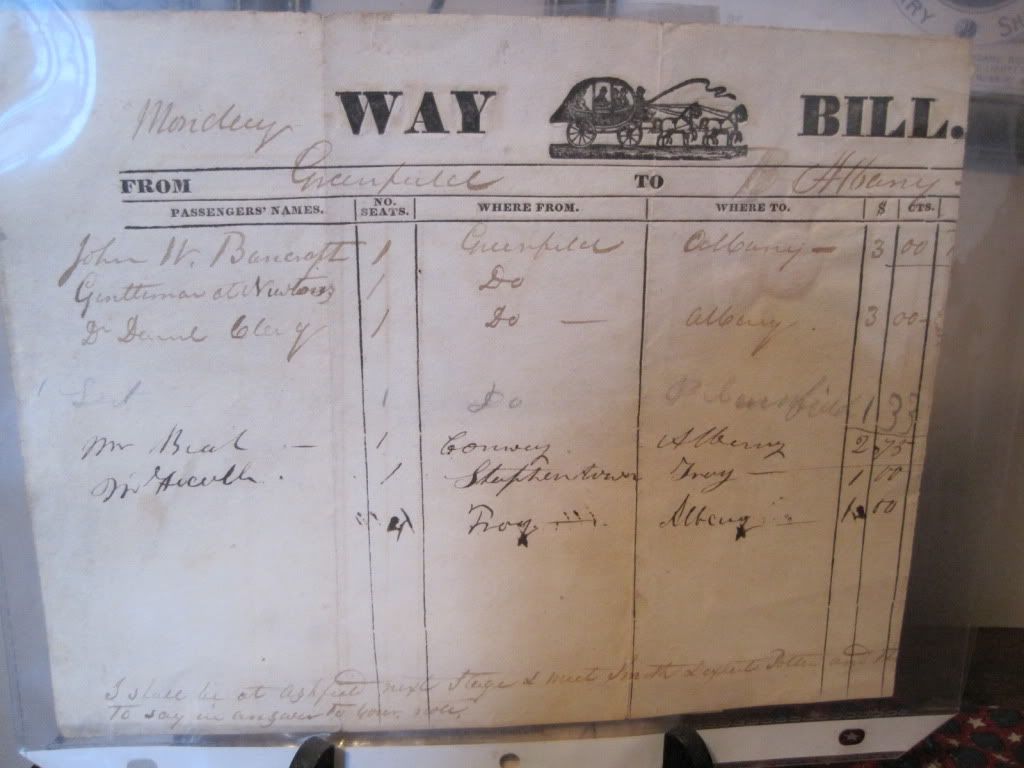 Monday WAY BILL.
FROM Greenfield TO Albany
PASSENGERS' NAMES. NO. SEATS. WHERE FROM. WHERE TO. $ CTS.
John W. Bancroft 1 Greenfield Albany 3 00
Gentleman at Newtons 1 Do
Dr 1 Do Albany 3 00
1 Do 1 33
Mr 1 Conway Albany 2 75
Mr 1 Stephentown Troy 1 00
4 Troy Albany 00
I shall be at Ashfield next Stage & meet and
to say in answer to your note.